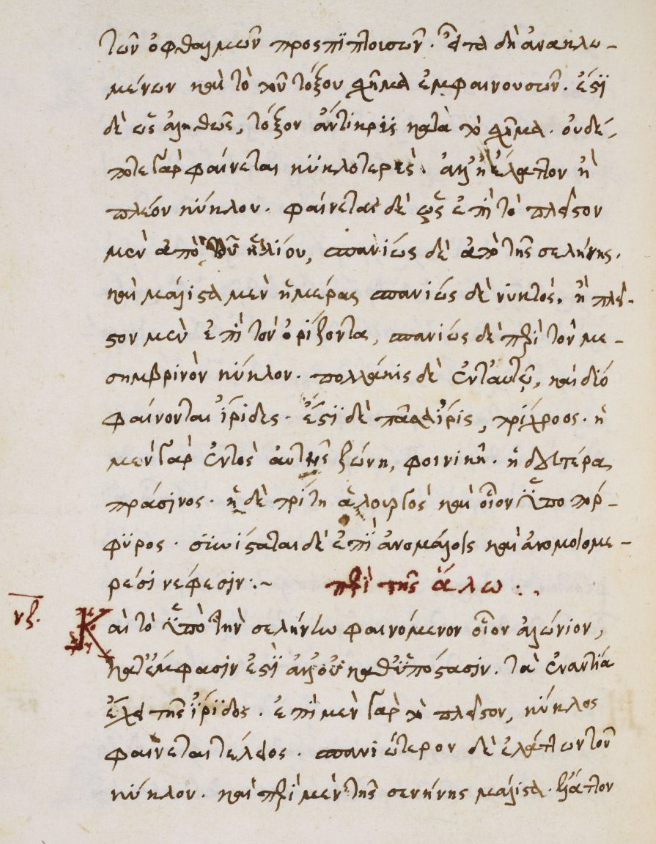 τῶν ὀφθαλμῶν προσπϊπλουσῶν. ἔπϊτα δὴ ἀνακλω-
μένων καὶ τὸ τοῦ τόξου σχῆμα ἐμφαινουσῶν. ἐστϊ
δὲ ὡς ἀληθῶς, τόξον ἀντίκρϊς κατὰ τὸ σχῆμα. οὐδέ-
ποτε γὰρ φαίνεται κϋκλοτερὲς. ἀλλ' ἢ ἔλαττον ἢ
πλέον κύκλου. φαίνεται δὲ ὡς ἐπὶ τὸ πλεῖστον
μὲν ἀπὸ τοῦ ἡλίου, σπανίως δὲ ἀπὸ τῆς σελήνης.
καὶ μάλιστα μὲν ἡμέρας σπανίως δὲ νυκτὸς. ἢ πλεῖ-
στον μὲν ἐπὶ τὸν ὁρίζοντα, σπανίως δὲ περὶ τὸν με-
σημβρινὸν κύκλον. πολλάκις δὲ ἐνταυτῶ, καὶ δύο
φαίνονται ἴριδες. ἐστϊ δὲ πᾶσα ἶρις, τρίχροος. ἡ
μὲν γὰρ ἐντὸς αὐτῆς ζώνη, φοινικῆ. ἡ δευτέρα,
πράσινος. ἡ δὲ τρίτη ἁλουργὸς καὶ οἷον ϋποπόρ-
φϋρος. συνίσταται δὲ ἐπϊ ἀνομάλοις καὶ ἀνομοιομε-
ρέσι νέφεσιν:~ περὶ τῆς ἅλω..
νζ. Καὶ τὸ ϋπὸ τὴν σελήνην φαινόμενον οἷον ἁλώνιον,
κατ' ἔμφασιν ἐστϊ ἀλλ' οὐ καθ' ϋπόστασιν. τὰ ἐναντία
ἔχει τῆς ἴριδος. ἐπὶ μὲν γὰρ τὸ πλεῖστον, κύκλος
φαίνεται τέλειος. σπανιώτερον δὲ ἐλάττων τοῦ
κύκλου. καὶ περὶ μὲν τῆς σενήνης μάλιστα. ἔλαττον